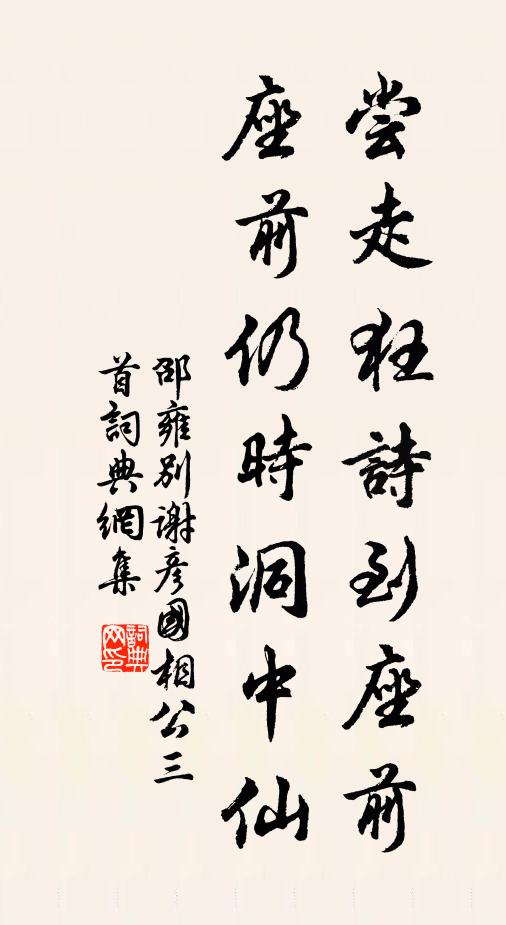 尝走狂詩到座前
座前仍時洞中仙
邵雍別谢彦國相公三
首詞典網集
詞典
网印